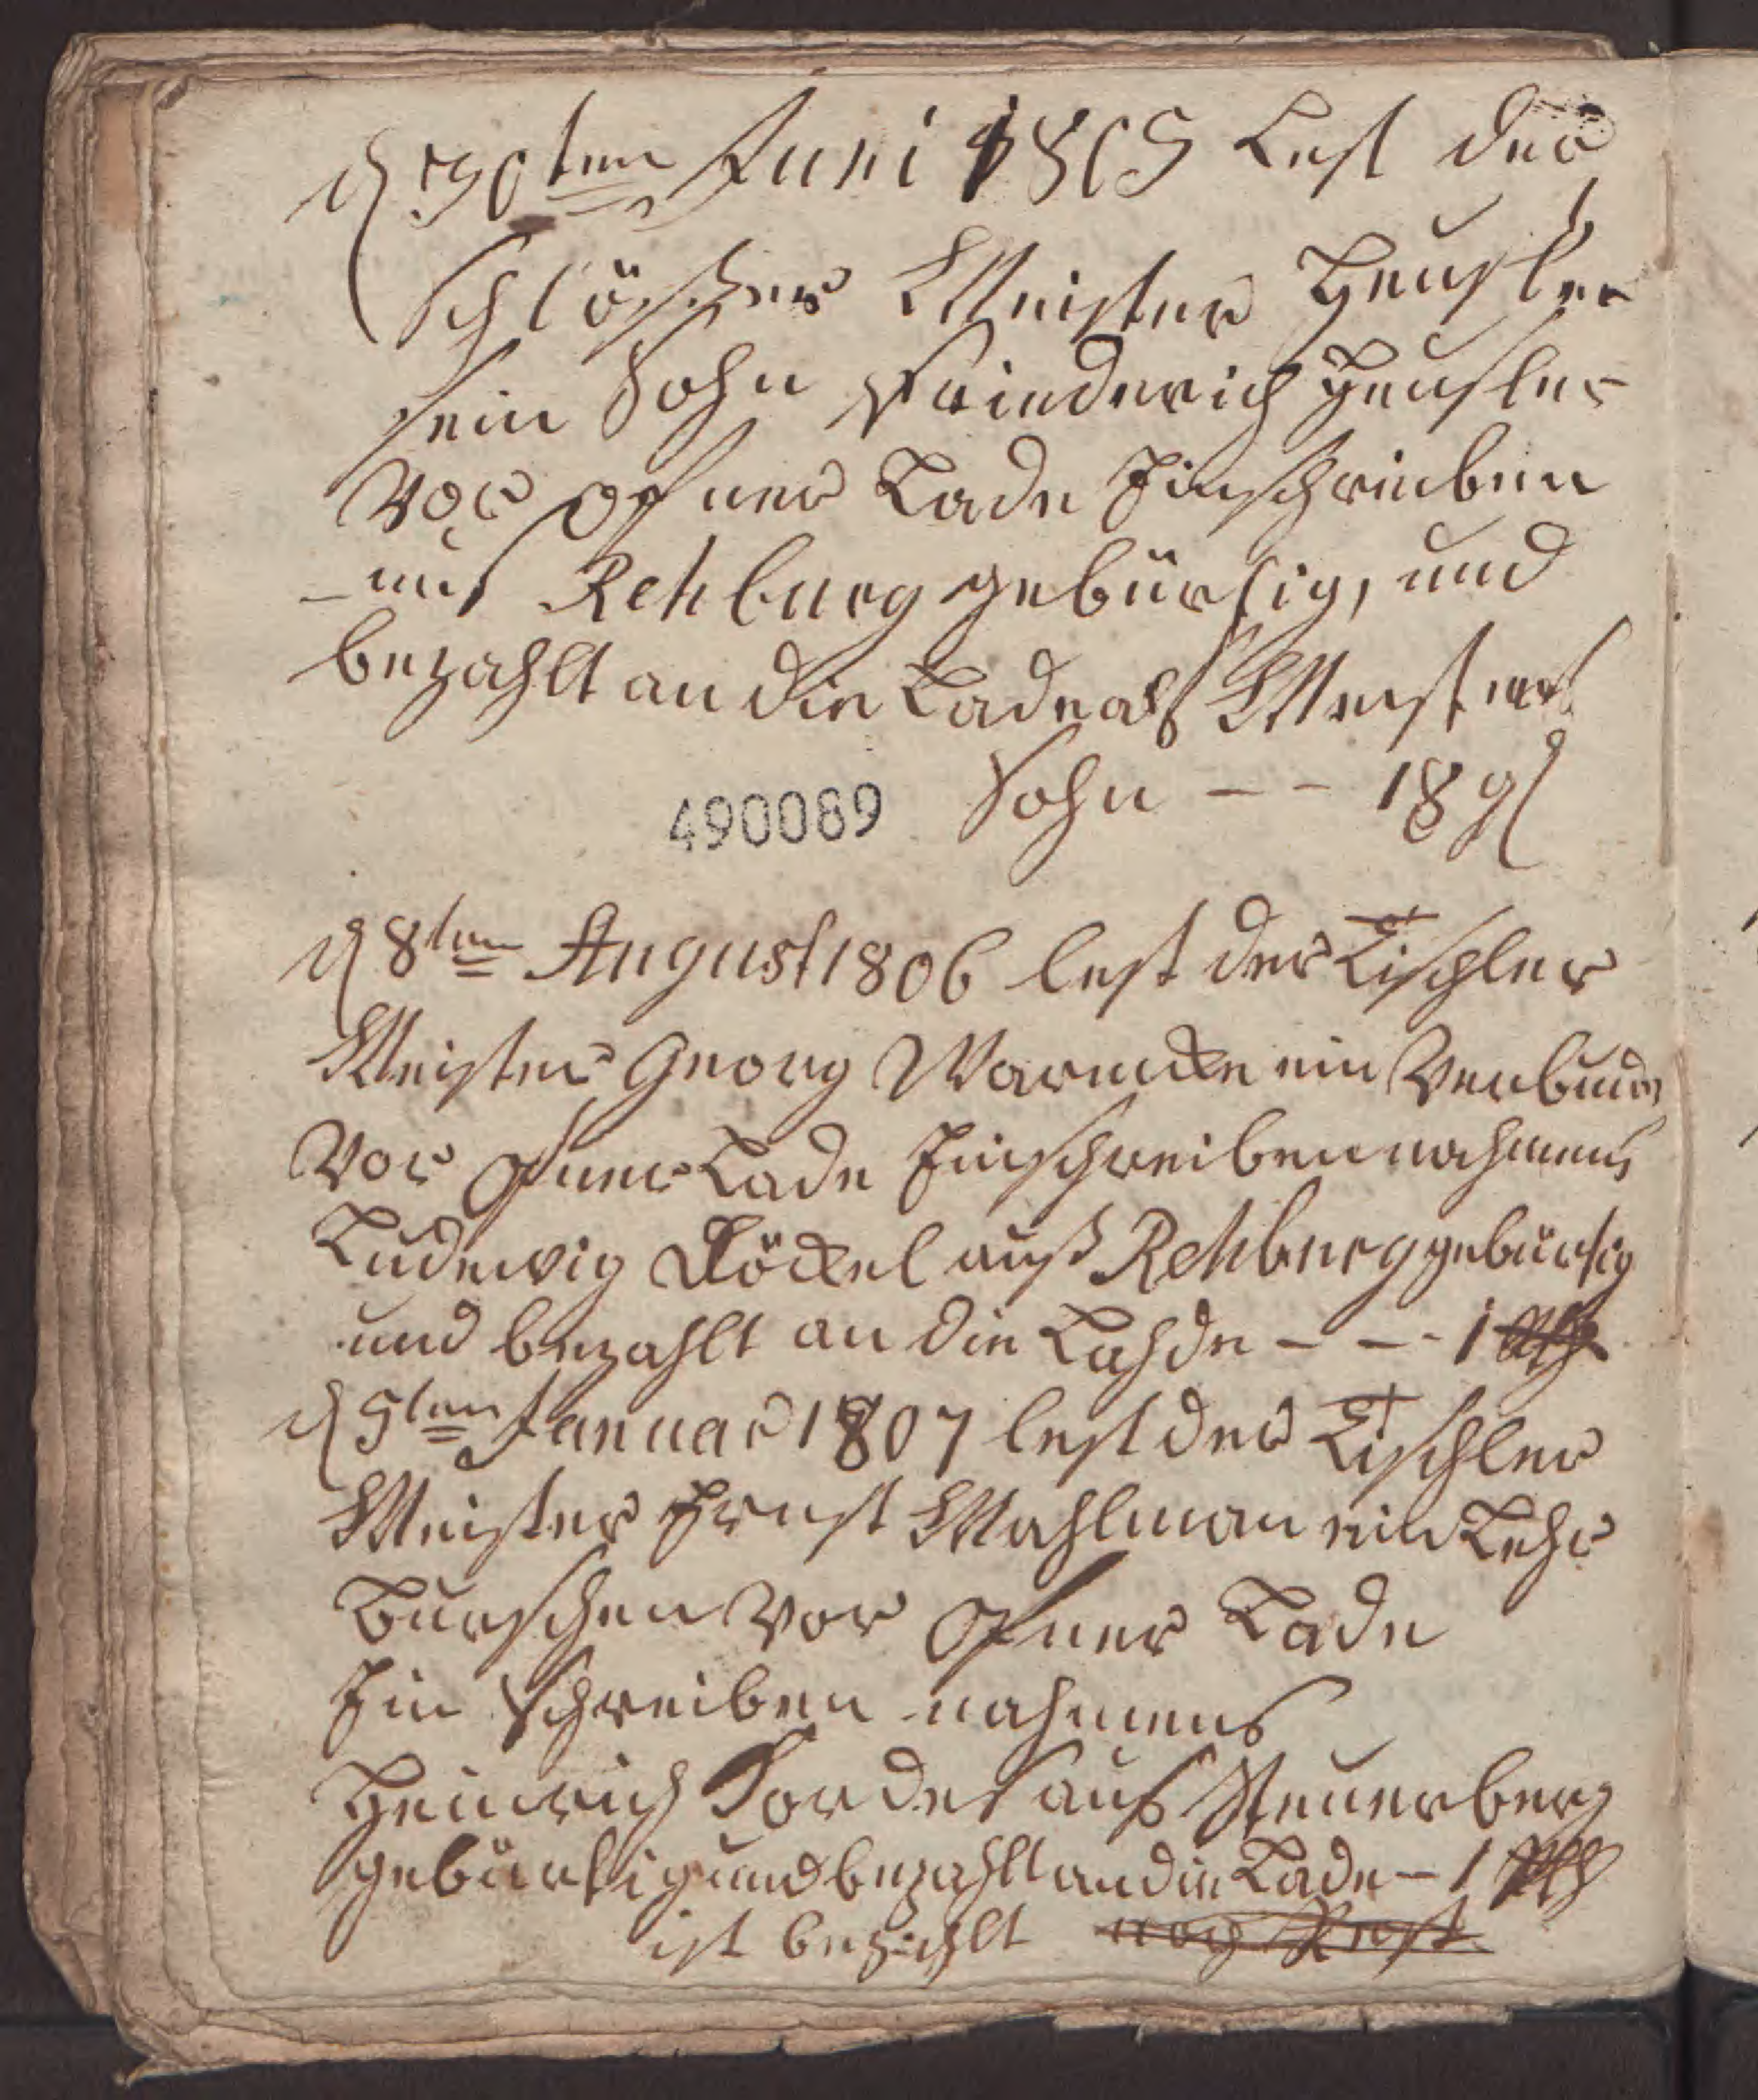 d 30ten Juni 1805 Lest der
Schlösser Meister Heusler
sein Sohn Friederich Heusler
Vor ofner Lade Einschrieben
aus Rehburg gebürtig, und
bezahlt an die Lade als Meisters
Sohn -- 18 g
490089
d 8ten August 1806 lest der Tischler
Meister Georg Warneke ein
Vor ofner Lade Einschreiben nahmens
Ludewig Döckel auß Rehburg gebürtig
und bezahlt an die Lahde --- 1 Rth
d 5ten Januar 1807 lest der Tischler
Meister Ernst Mahlman ein Lehr
Burschen Vor ofner Lade
Ein Schreiben nahmens
Heinrich Cordes aus
gebürtig und bezahlt an die Lade - 1 Rth
ist bezahlt noch Rest